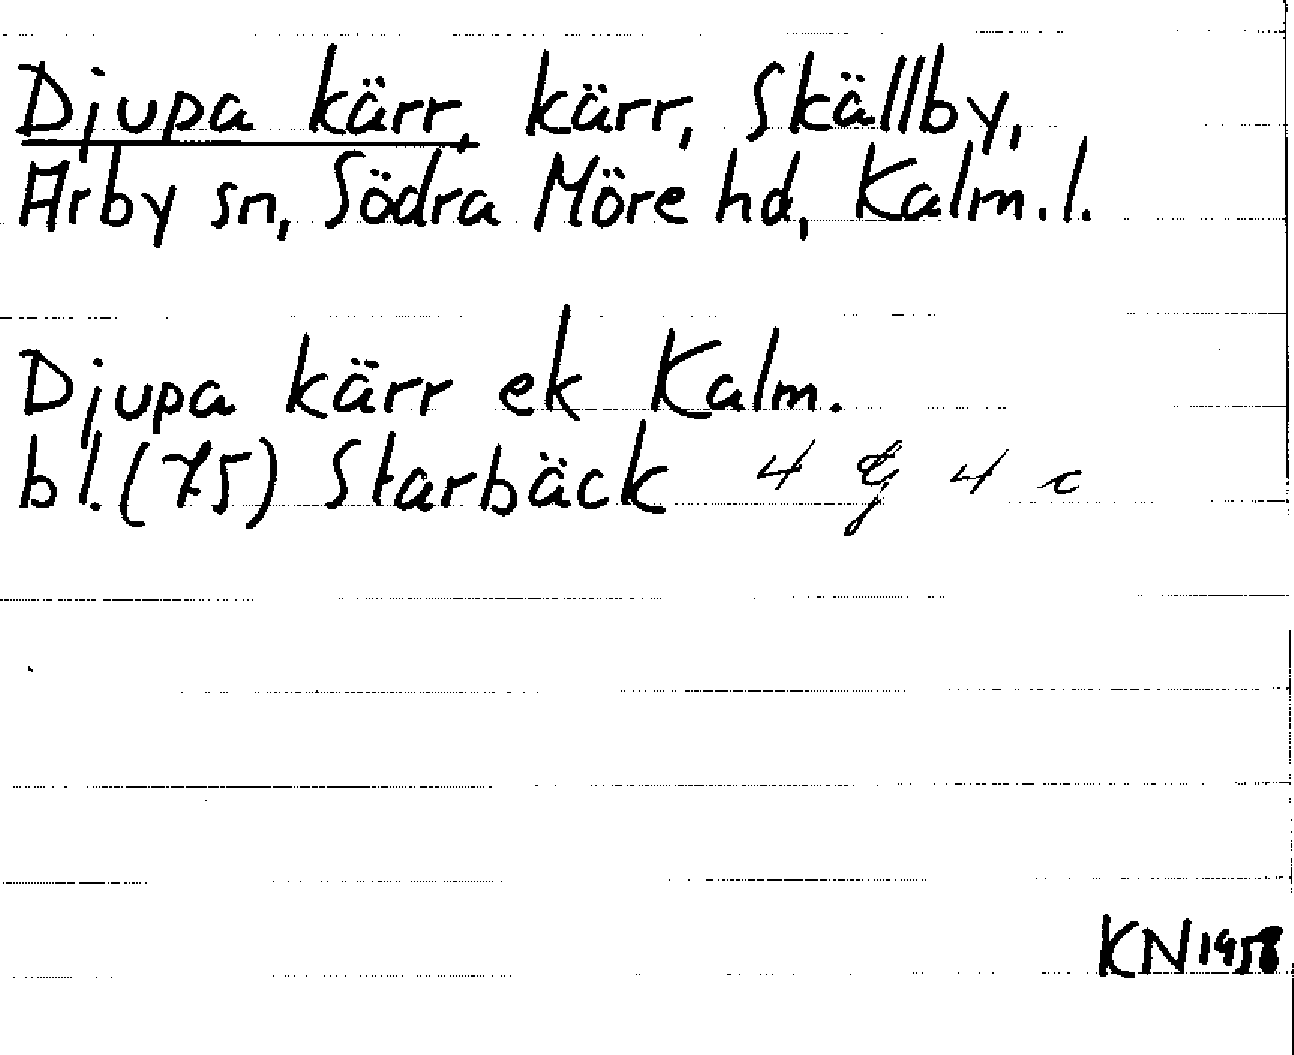 Djupa kärr, kärr, Skällby,
Arby sn, Södra Möre hd, Kalm. l.
Djupa kärr ek Kalm.
bl. (75) Starbäck 4 g 4 c
KN 1958